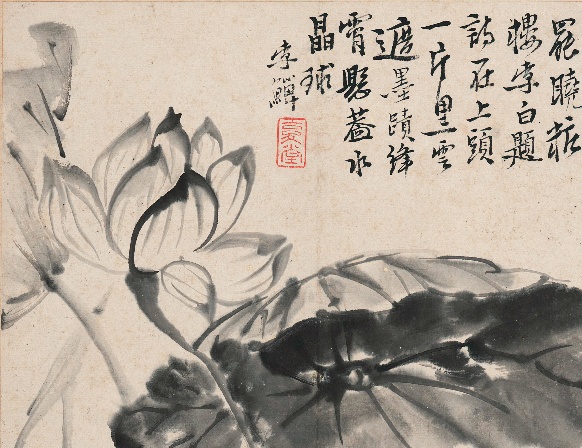 罷曉粧
樓李白題
詩在上頭
一片黑雲
遮墨蹟絳
霄懸蓋水
晶球
李鱓